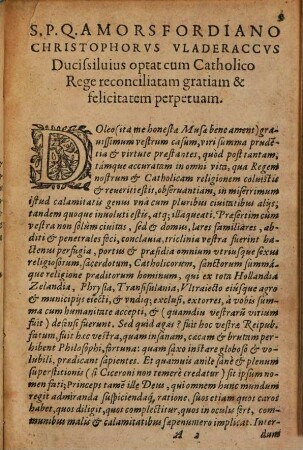 S.P.Q.AMORSFORDIANO
CHRISTOPHORVS VLADERACCVS
Duciſsiluius optat cum Catholico
Rege reconciliatam gratiam &
felicitatem perpetuam.
DOleo (ita me honeſta Muſa bene ament) gra-
uiſsimum veſtrum caſum, viri ſumma prudẽ-
tia & virtute præſtãtes, quòd poſt tantam,
támque accuratam in omni vita, qua Regem
noſtrum & Catholicam religionem coluiſtis
& reueriti eſtis, obſeruantiam, in miſerrimum
iſtud calamitatis genus vnà cum pluribus ciuitatibus alijs,
tandem quoque inuoluti eſtis, atq; illaqueati. Præſertim cùm
veſtra non ſolùm ciuitas, ſed & domus, lares familiares, ab-
diti & penetrales ſeceſ, conclauia, triclinia veſtra fuerint hac-
tenus perfugia, portus & præſidia omnium vtriúſque ſexus
religioſorum, ſacerdotum, Catholicorem, ſanctorum ſummá-
que religione præditorum hominum, qui ex tota Hollandia
Zelandia, Phryſia, Tranſiſulania, Vltraiecto eiúſque agro
& municipijs eiecti, & vndiq; excluſi, extorres, à vobis ſumma
cum humanitate accepti, & (quamdiu veſtrarũ virium
fuit) defenſi fuerunt. Sed quid agas? fuit hoc veſtræ Reipub.
fatum, ſuit hæc veſtra, quam inſanam, cæcam & brutam per-
hibent Philoſophi, fortuna: quam ſaxo inſtare globoſo & vo-
lubili, prædicant ſapientes. Et quamuis anile ſanè & plenum
ſuperſtitionis (ſi Ciceroni non temerè credatur) ſit ipſum nomen
fati; Princeps tamẽ ille Deus, qui omnem hunc mundum
regit admiranda ſuſpiciendáq; ratione, ſuos etiam quos caros
habet, quos diligit, quos complectitur, quos in oculis fert, com-
munibus malis & calamitatibus ſapenumero implicat. Inter-
A 2 dum